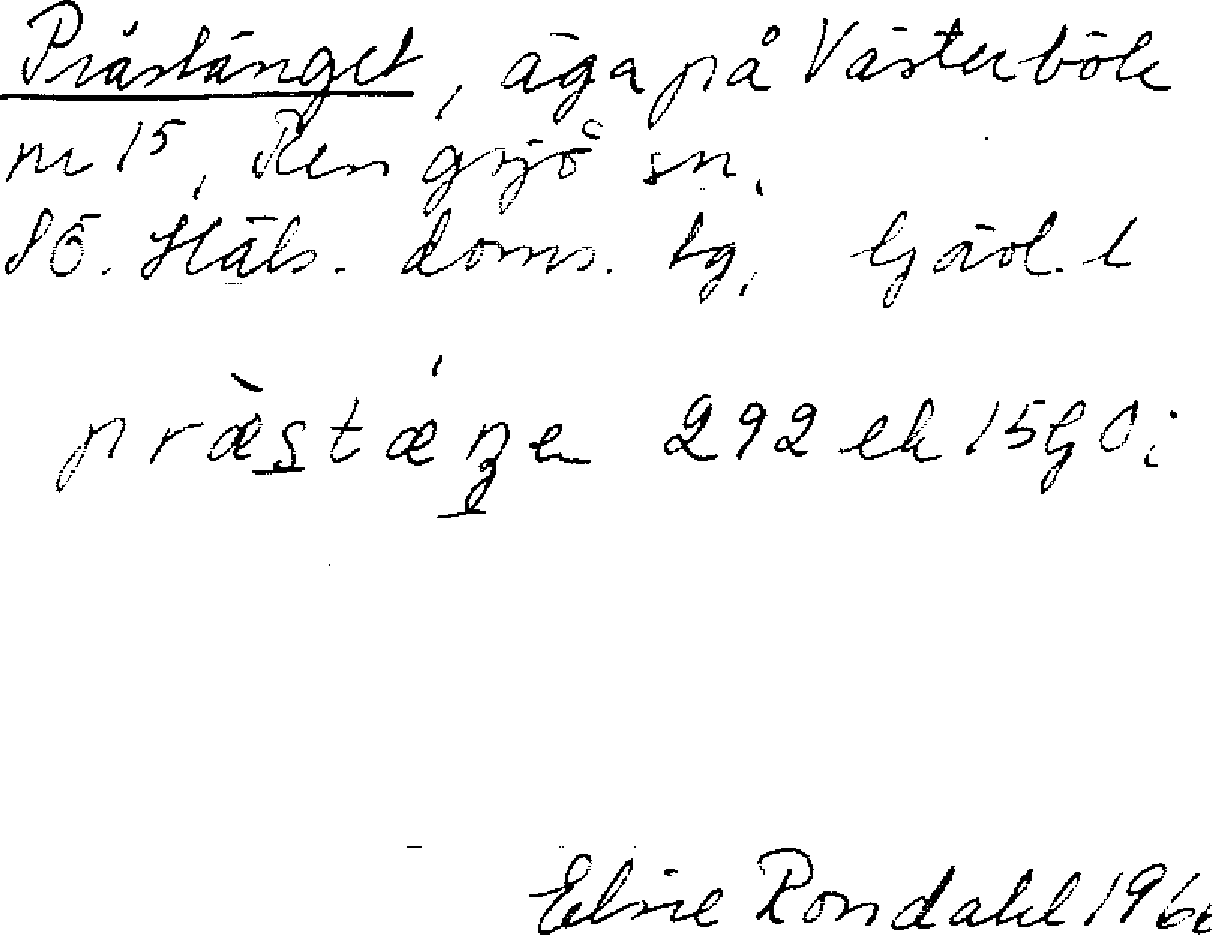 Prästänget, äga på Västerböle
nr 15, Rengsjö sn,
Sö. Häls. doms. tg, Gävl. l
præstæŋe 292 ek 15G0i
Elsie Rondahl 196